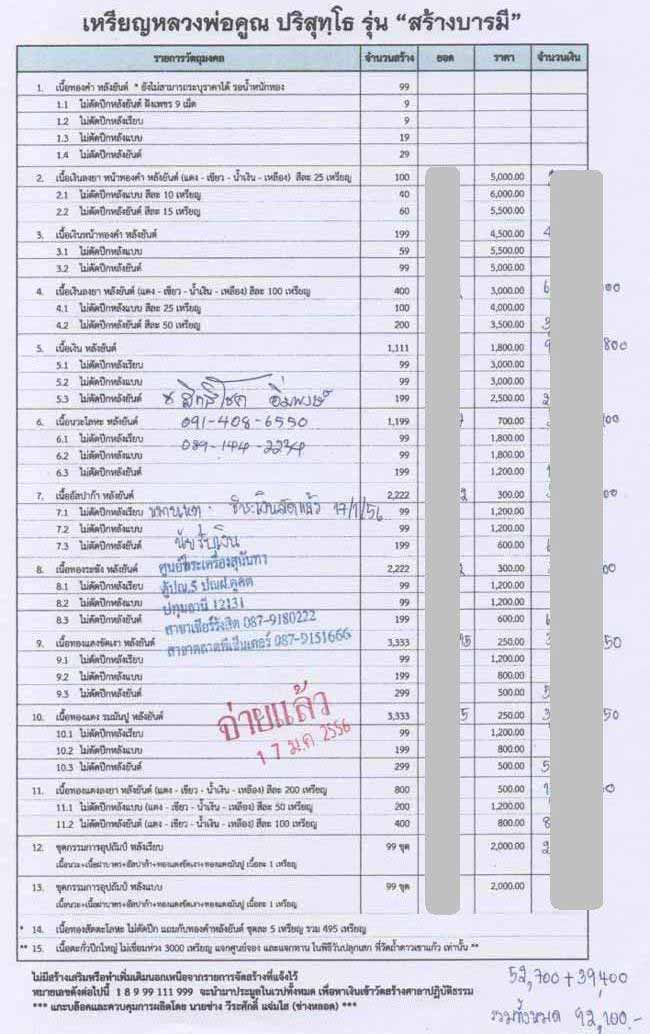 เหรียญหลวงพ่อคูณ ปริสุทฺโธ รุ่น “สร้างบารมี”
รายการวัตถุมงคล จำนวนสร้าง ยอด ราคา จำนวนเงิน
1. เนื้อทองคำ หลังยันต์ * ยังไม่สามารถระบุราคาได้ รอน้ำหนักทอง 99
1.1 ไม่ตัดปีกหลังยันต์ ฝังเพชร 9 เม็ด 9
1.2 ไม่ตัดปีกหลังเรียบ 9
1.3 ไม่ตัดปีกหลังแบบ 19
1.4 ไม่ตัดปีกหลังยันต์ 29
2. เนื้อเงินลงยา หน้าทองคำ หลังยันต์ (แดง - เขียว - น้ำเงิน - เหลือง) สีละ 25 เหรียญ 100 5,000.00
2.1 ไม่ตัดปีกหลังแบบ สีละ 10 เหรียญ 40 6,000.00
2.2 ไม่ตัดปีกหลังยันต์ สีละ 15 เหรียญ 60 5,500.00
3. เนื้อเงินหน้าทองคำ หลังยันต์ 199 4,500.00 4
3.1 ไม่ตัดปีกหลังแบบ 59 5,500.00
3.2 ไม่ตัดปีกหลังยันต์ 99 5,000.00
4. เนื้อเงินลงยา หลังยันต์ (แดง - เขียว - น้ำเงิน - เหลือง) สีละ 100 เหรียญ 400 3,000.00 6 00
4.1 ไม่ตัดปีกหลังแบบ สีละ 25 เหรียญ 100 4,000.00
4.2 ไม่ตัดปีกหลังยันต์ สีละ 50 เหรียญ 200 3,500.00 3
5. เนื้อเงิน หลังยันต์ 1,111 1,800.00 9 800
5.1 ไม่ตัดปีกหลังเรียบ 99 3,000.00
5.2 ไม่ตัดปีกหลังแบบ 99 3,000.00
5.3 ไม่ตัดปีกหลังยันต์ 199 2,500.00 2
สิทธิโชค อิ่มพงษ์
6. เนื้อนวะโลหะ หลังยันต์ 1,199 700.00 00
091-408-6550
6.1 ไม่ตัดปีกหลังเรียบ 99 1,800.00
089-144-2234
6.2 ไม่ตัดปีกหลังแบบ 99 1,800.00
6.3 ไม่ตัดปีกหลังยันต์ 199 1,200.00
7. เนื้ออัลปาก้า หลังยันต์ 2,222 2 300.00 00
7.1 ไม่ตัดปีกหลังเรียบ 99 1,200.00
หมายเหตุ ชำระเงินสดแล้ว 17/1/56
7.2 ไม่ตัดปีกหลังแบบ 99 1,200.00
7.3 ไม่ตัดปีกหลังยันต์ 199 600.00 6
ผู้รับเงิน
8. เนื้อทองระฆัง หลังยันต์ 2,222 2 300.00 00
ศูนย์พระเครื่องสุนันทา
8.1 ไม่ตัดปีกหลังเรียบ 99 1,200.00
ตู้ปณ.5 ปณฝ.คูคต
8.2 ไม่ตัดปีกหลังแบบ 99 1,200.00
ปทุมธานี 12131
8.3 ไม่ตัดปีกหลังยันต์ 199 600.00 6
สาขาเซียร์รังสิต 087-9180222
9. เนื้อทองแดงขัดเงา หลังยันต์ 3,333 5 250.00 3 50
9.1 ไม่ตัดปีกหลังเรียบ 99 1,200.00
9.2 ไม่ตัดปีกหลังแบบ 199 800.00
9.3 ไม่ตัดปีกหลังยันต์ 299 500.00 5
10. เนื้อทองแดง รมมันปู หลังยันต์ 3,333 5 250.00 3 50
10.1 ไม่ตัดปีกหลังเรียบ 99 1,200.00
10.2 ไม่ตัดปีกหลังแบบ 199 800.00
10.3 ไม่ตัดปีกหลังยันต์ 299 500.00 5
จ่ายแล้ว
17 ม.ค. 2556
11. เนื้อทองแดงลงยา หลังยันต์ (แดง - เขียว - น้ำเงิน - เหลือง) สีละ 200 เหรียญ 800 500.00 1
11.1 ไม่ตัดปีกหลังแบบ (แดง - เขียว - น้ำเงิน - เหลือง) สีละ 50 เหรียญ 200 1,200.00
11.2 ไม่ตัดปีกหลังยันต์ (แดง - เขียว - น้ำเงิน - เหลือง) สีละ 100 เหรียญ 400 800.00 8
12. ชุดกรรมการอุปถัมป์ หลังเรียบ 99 ชุด 2,000.00 2
เนื้อนวะ+เนื้อฝาบาตร+อัลปาก้า+ทองแดงขัดเงา+ทองแดงมันปู เนื้อละ 1 เหรียญ
13. ชุดกรรมการอุปถัมป์ หลังแบบ 99 ชุด 2,000.00
เนื้อนวะ+เนื้อฝาบาตร+อัลปาก้า+ทองแดงขัดเงา+ทองแดงมันปู เนื้อละ 1 เหรียญ
* 14. เนื้อทองสัตตะโลหะ ไม่ตัดปีก แถมกับทองคำหลังยันต์ ชุดละ 5 เหรียญ รวม 495 เหรียญ
** 15. เนื้อตะกั่วปีกใหญ่ ไม่เชื่อมห่วง 3000 เหรียญ แจกศูนย์จอง และแจกทาน ในพิธีวันปลุกเสก ที่วัดถ้ำดาวเขาแก้ว เท่านั้น **
ไม่มีสร้างเสริมหรือทำเพิ่มเติมนอกเหนือจากรายการจัดสร้างที่แจ้งไว้
52,700 + 39,400
หมายเลขดังต่อไปนี้ 1 8 9 99 111 999 จะนำมาประมูลในเวปทั้งหมด เพื่อหาเงินเข้าวัดสร้างศาลาปฏิบัติธรรม
*** แกะบล็อคและควบคุมการผลิตโดย นายช่าง วีระศักดิ์ แจ่มใส (ช่างหลอด) ***
รวมทั้งหมด 92,100.-